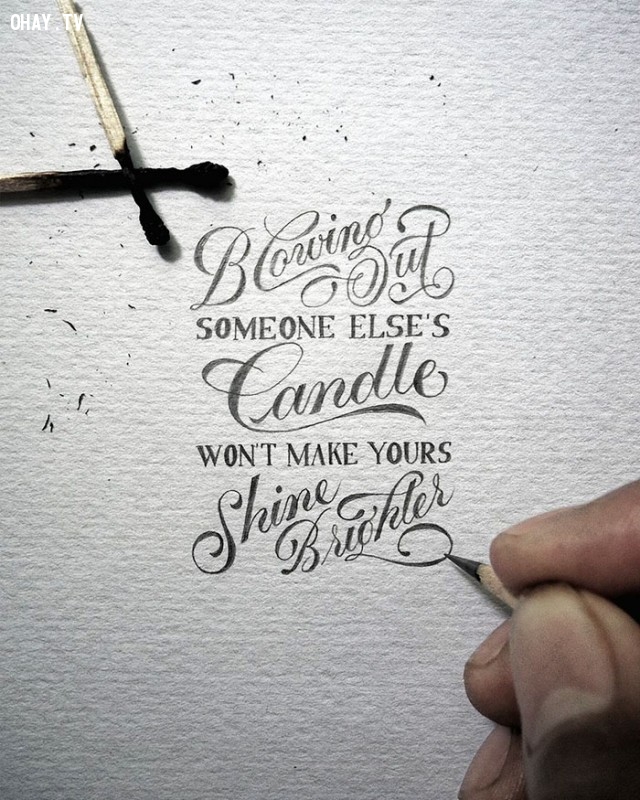 OHAY.TV
Blowing Out
SOMEONE ELSE'S
Candle
WON'T MAKE YOURS
Shine
Brighter